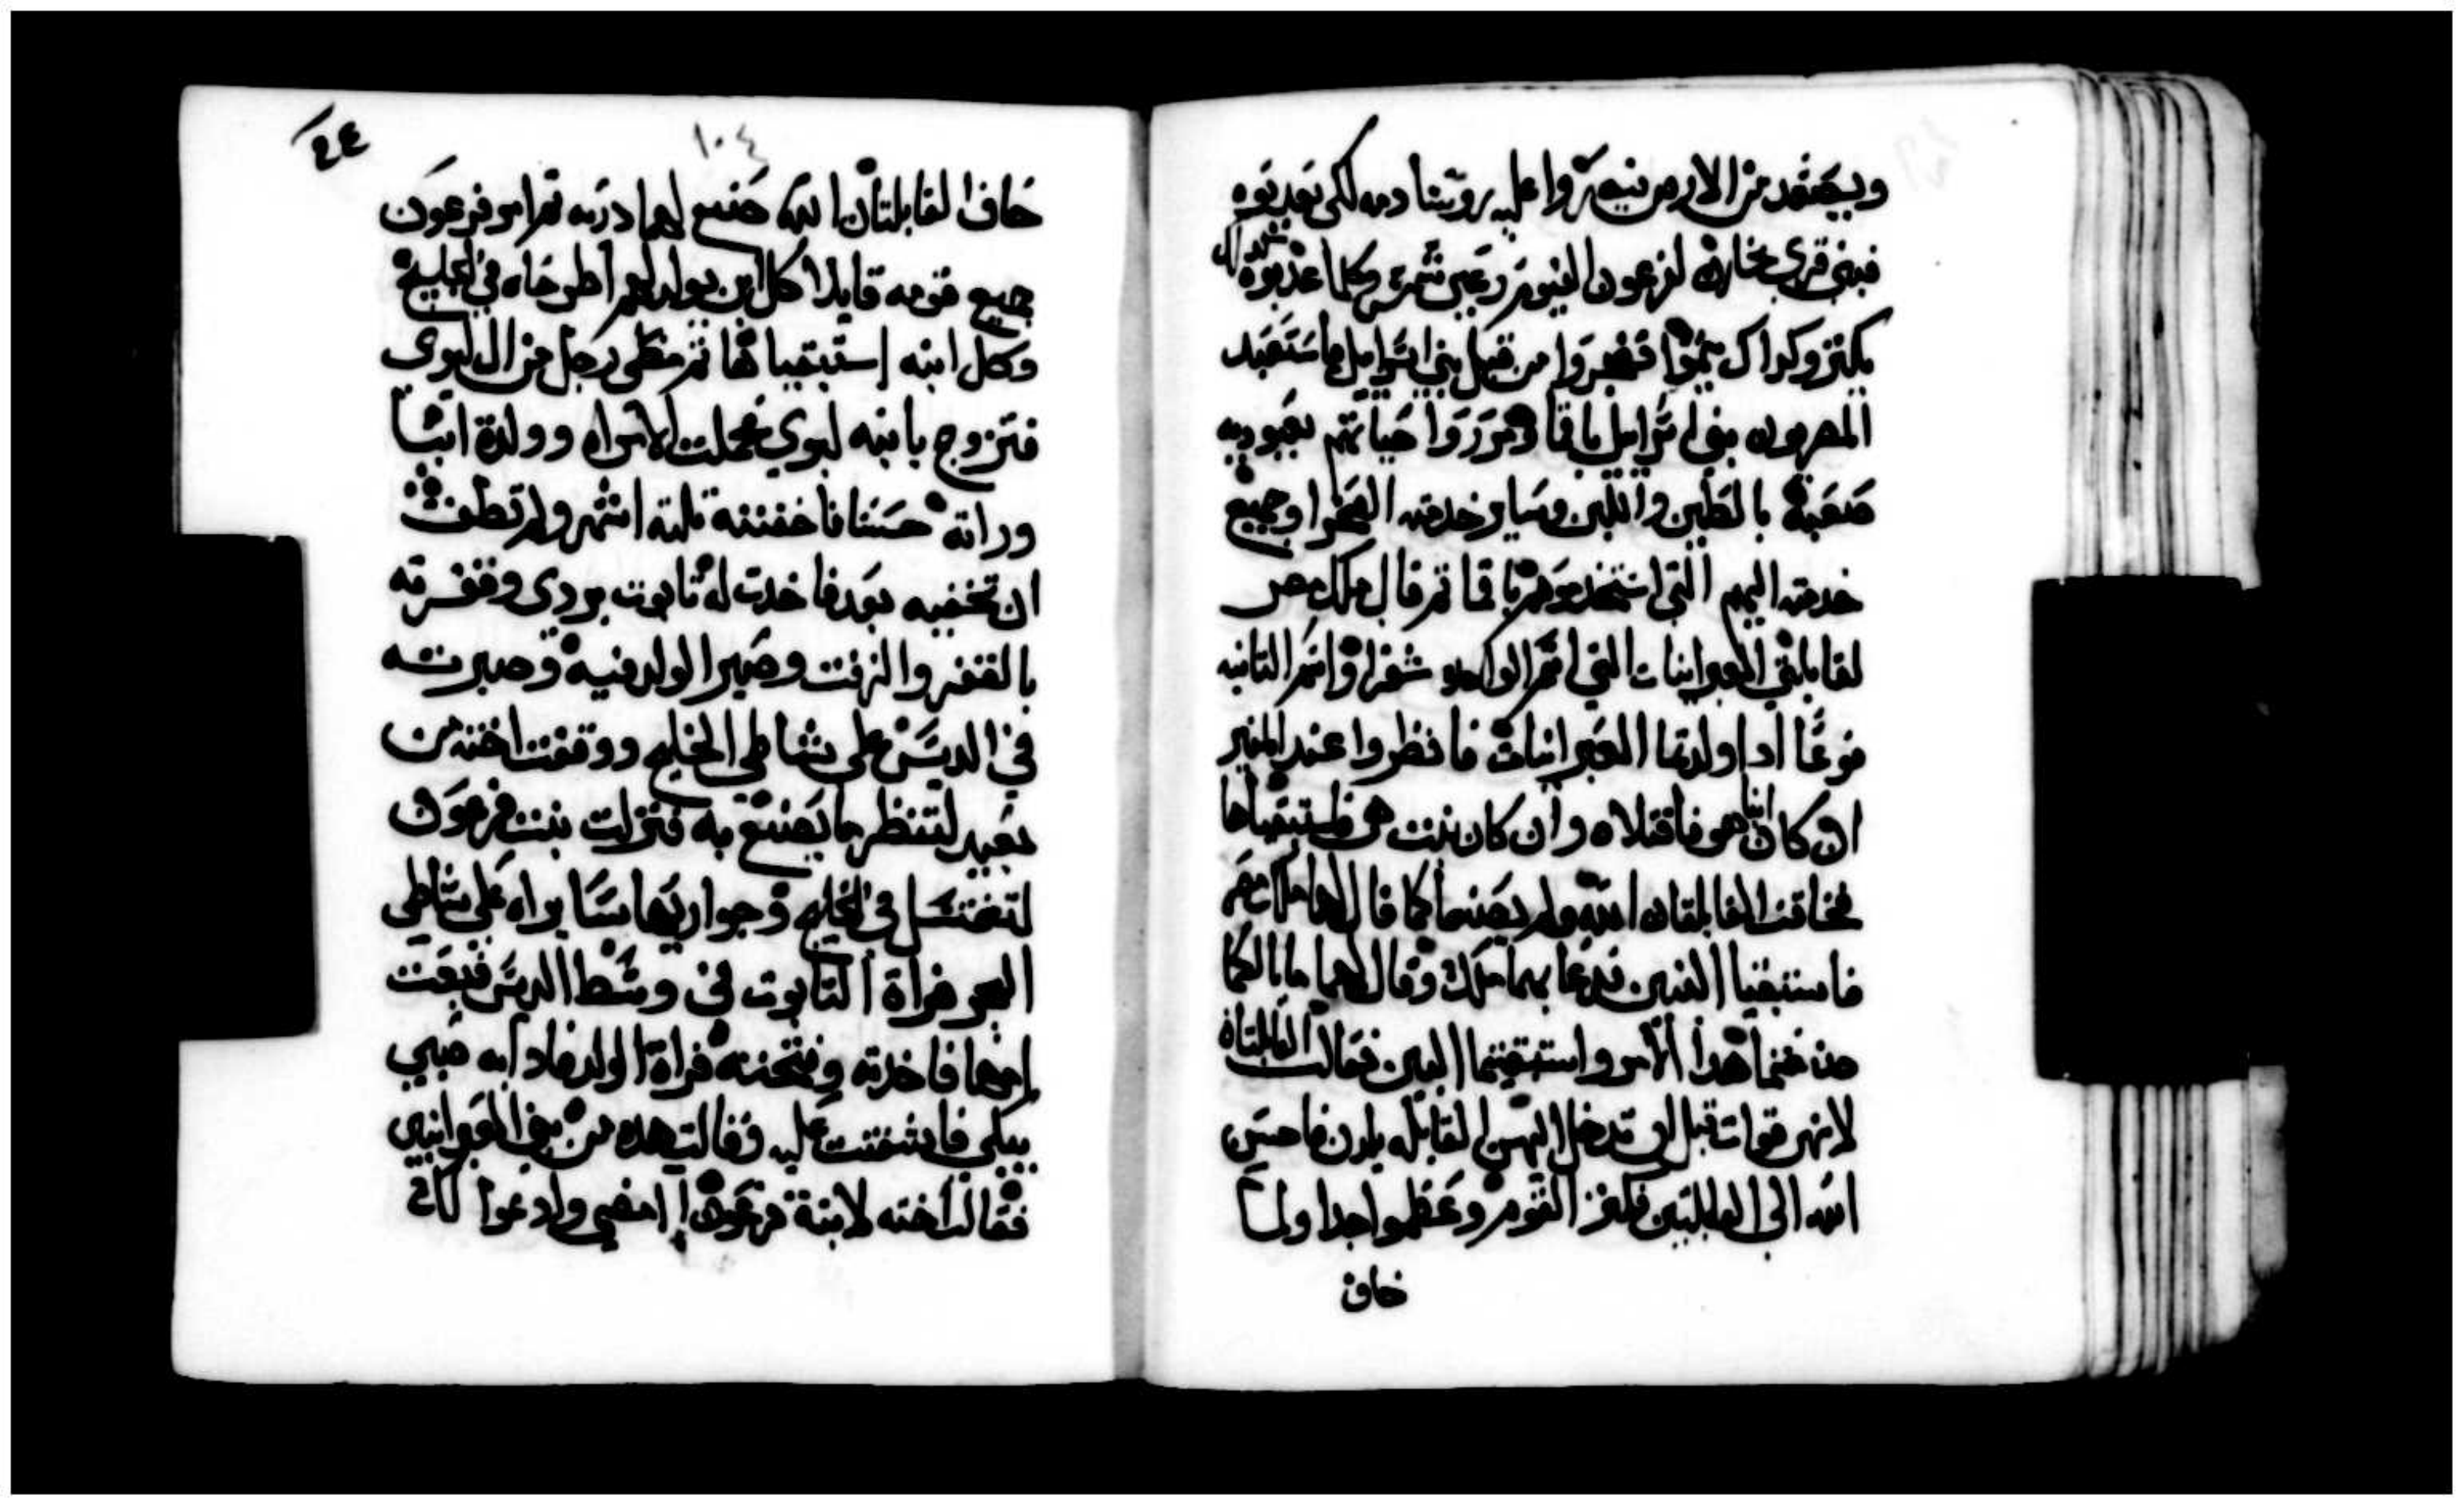 ويصعد من الارض فيصيروا عليه روسا دمه لكي يعدبوه
فبنى قرى مخازن لفرعون الفيوم وعين شمس وكلما عذبوه
كدلك
يكتر وكداك ينموا فضجروا من قبل بني اسرايل فاستعبد
المصريون بني اسرايل باقا ومرروا حياتهم بعبوديه
صعبة بالطين واللبن وساير خدمه الصحرا وجميع
خدمه اليهم التي استخدموهم باقا تم قال ملك مصر
لقابلتي العبرانيات التي اسم الواحده شفرا واسم التانيه
فوعا ادا ولدتما العبرانيات فانظروا عند المخير
ان كان ابنا هو فاقتلاه وان كان بنت هي فاستبقياها
فخافتا القابلتان الله ولم يصنعا كما قال لهما ملك مصر
فاستبقيا الفنين فدعا بهما ملك وقال لهما ما بالكما
صنعتما هدا الأمر واستبقيتما البنين فقالت القابلتان
لانهن قوات قبل ان تدخل اليهن القابله يلدن فاحسن
الله الى القابلتين فكتر القوم وعظموا جدا ولما
خاف
٤٤
١٠٤
خاف القابلتان الله صنع لهما دريه تم امر فرعون
جميع قومه قايلا كل ابن يولد لهم اطرحاه في الخليج
وكل ابنه إستبقياها تم مضى رجل من ال ليوي
فتزوج بابنه ليوي فحملت الامراه وولدة ابنا
وراته حسنا فاخفته تلته اشهر ولم تطق
ان تخفيه بعد فاخدت له تابوت بردي وقفرته
بالقفر والزفت وصير الولد فيه وصيرته
في الديس على شاطي الخليج ووقفت اخته من
بعيد لتنظر ما يصنع به فنزلت بنت فرعون
لتغتسل في الخليج وجواريها سايراه على شاطي
البحر فراة التابوت في وسط الديس فبعت
إمها فاخدته وفتحته فراة الولد فادا به صبي
يبكي فاشفقت عليه وقالت هده من بني العبرانيين
فقالت اخته لابنة فرعون امضي وادعوا لك